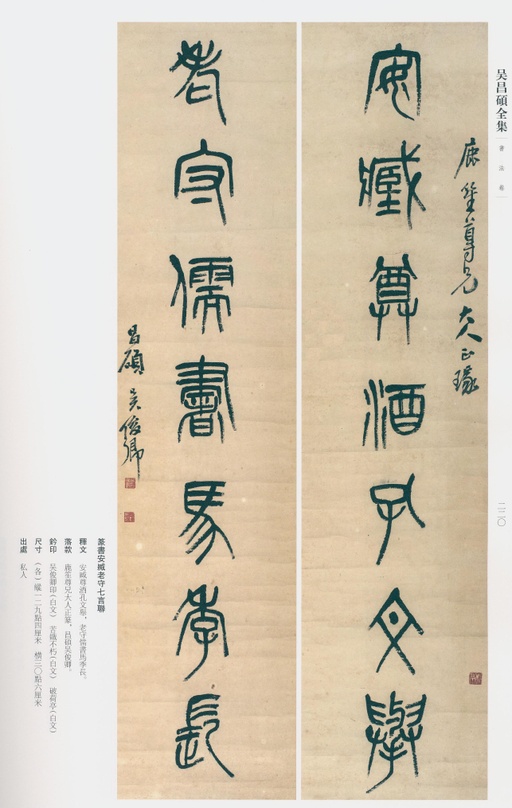 吴昌碩全集
書法卷
二二〇
鹿笙尊兄大人正瑑
安臧尊酒孔文舉
老守儒書馬季長
昌碩吳俊卿
篆書安臧老守七言聯
釋文 安臧尊酒孔文舉，老守儒書馬季長。
落款 鹿笙尊兄大人正篆，昌碩吳俊卿。
鈐印 吳俊卿印（白文） 苦鐵不朽（白文） 破荷亭（白文）
尺寸 （各）縱一二九點四厘米 橫三〇點六厘米
出處 私人